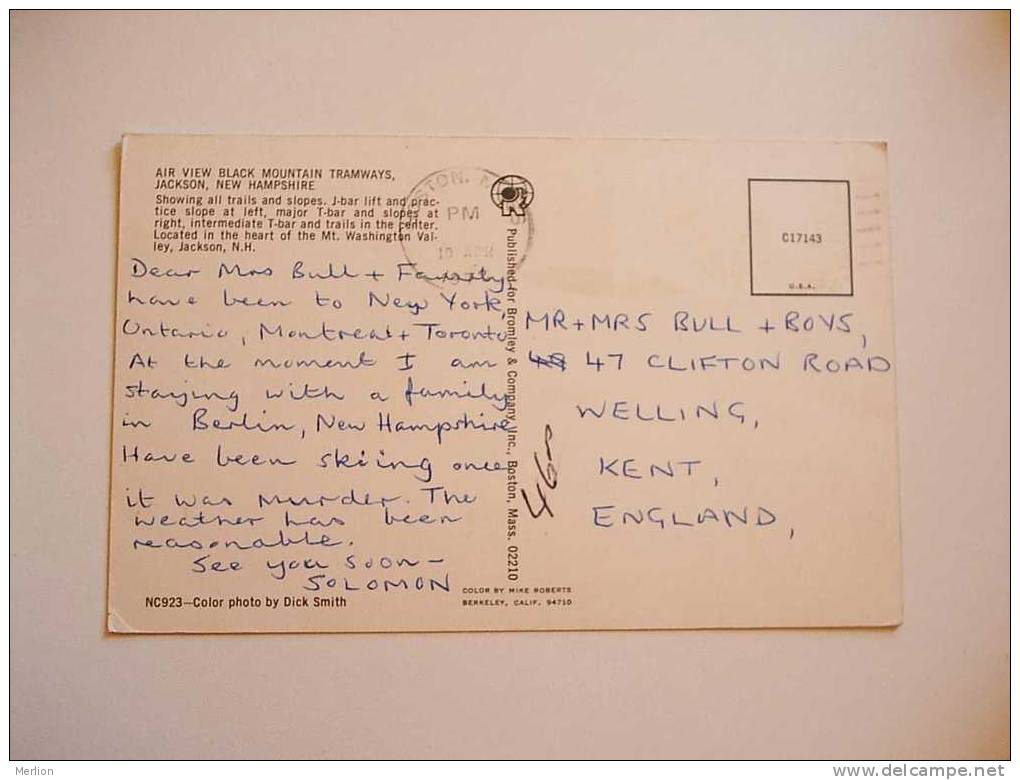 AIR VIEW BLACK MOUNTAIN TRAMWAYS,
JACKSON, NEW HAMPSHIRE
Showing all trails and slopes. J-bar lift and prac-
tice slope at left, major T-bar and slopes at
right, intermediate T-bar and trails in the center.
Located in the heart of the Mt. Washington Val-
ley, Jackson, N.H.
Dear Mrs Bull + Family
have been to New York,
Ontario, Montreal + Toronto
At the moment I am
staying with a family
in Berlin, New Hampshire
Have been skiing once
it was murder. The
weather has been
reasonable.
See you soon -
SOLOMON
NC923—Color photo by Dick Smith
PM
Published for Bromley & Company, Inc., Boston, Mass. 02210
COLOR BY MIKE ROBERTS
BERKELEY, CALIF. 94710
C17143
U.S.A.
MR + MRS BULL + BOYS,
47 CLIFTON ROAD
WELLING,
KENT,
ENGLAND,
Merlion
www.delcampe.net